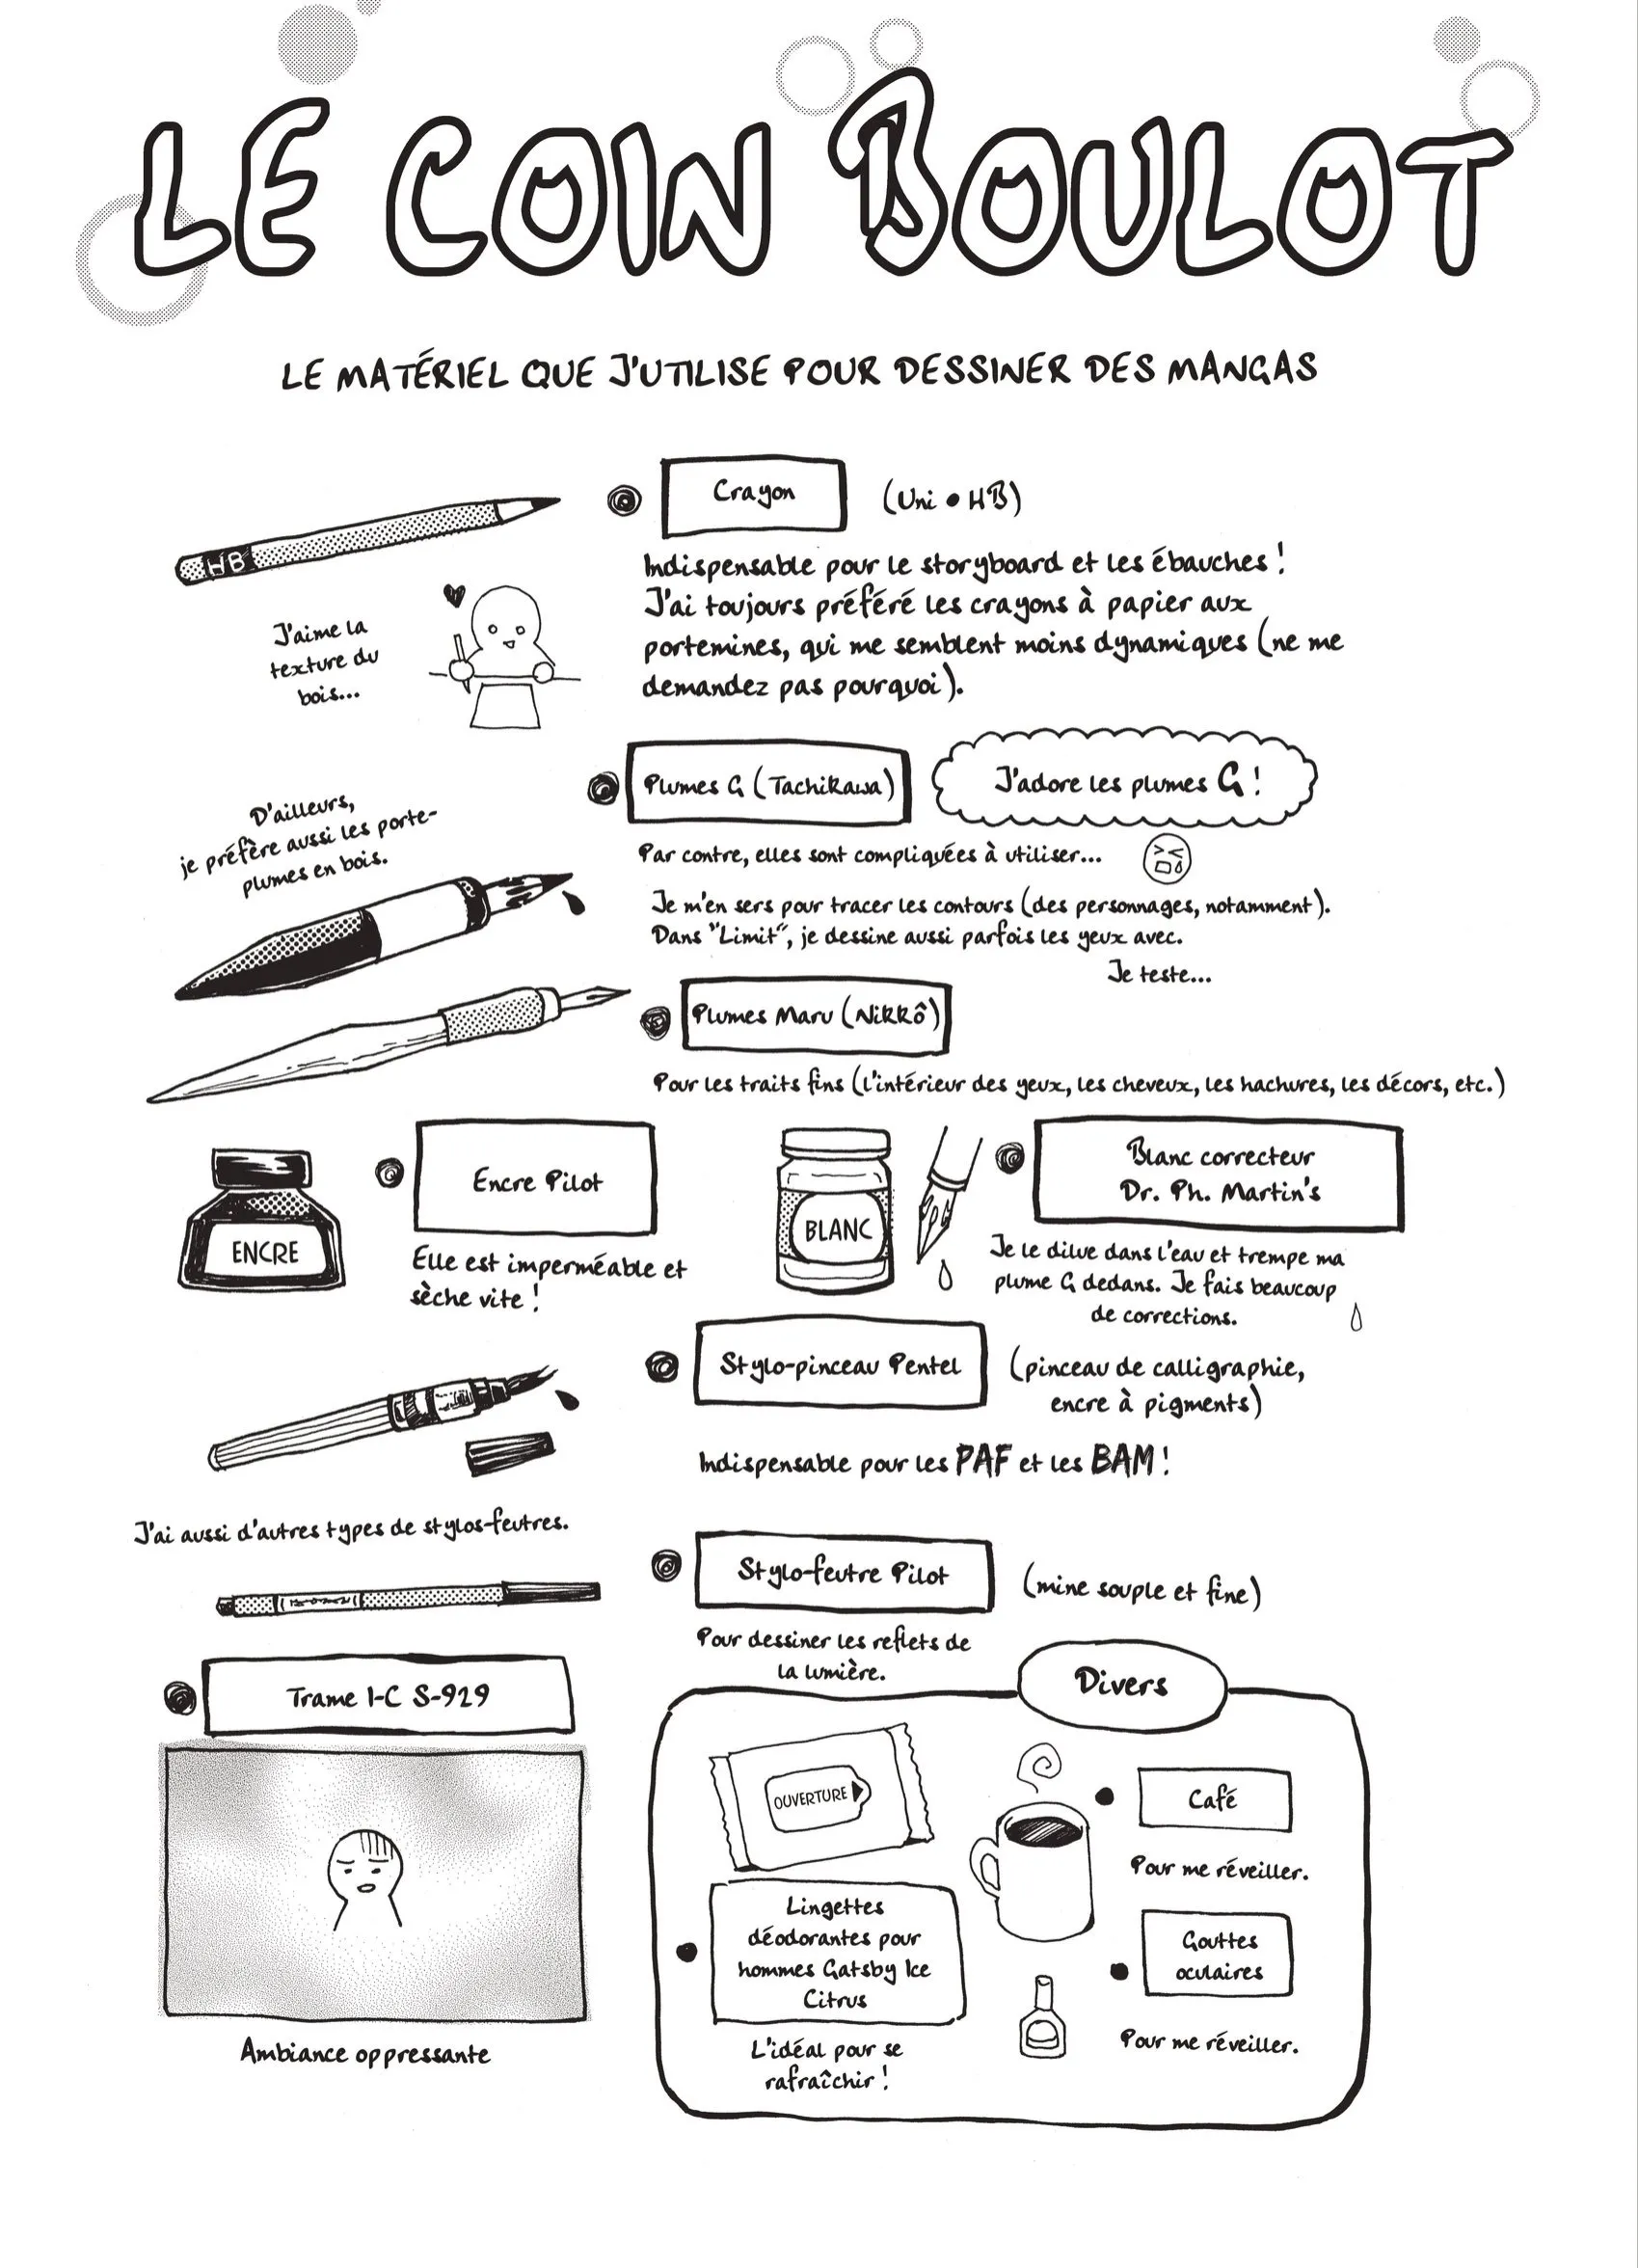 LE COIN BOULOT
LE MATÉRIEL QUE J'UTILISE POUR DESSINER DES MANGAS
HB
J'aime la
texture du
bois...
Crayon
(Uni • HB)
Indispensable pour le storyboard et les ébauches !
J'ai toujours préféré les crayons à papier aux
portemines, qui me semblent moins dynamiques (ne me
demandez pas pourquoi).
D'ailleurs,
je préfère aussi les porte-
plumes en bois.
Plumes G (Tachikawa)
J'adore les plumes G !
Par contre, elles sont compliquées à utiliser...
Je m'en sers pour tracer les contours (des personnages, notamment).
Dans "Limit", je dessine aussi parfois les yeux avec.
Je teste...
Plumes Maru (Nikkô)
Pour les traits fins (l'intérieur des yeux, les cheveux, les hachures, les décors, etc.)
ENCRE
Encre Pilot
Elle est imperméable et
sèche vite !
BLANC
Blanc correcteur
Dr. Ph. Martin's
Je le dilue dans l'eau et trempe ma
plume G dedans. Je fais beaucoup
de corrections.
Stylo-pinceau Pentel
(pinceau de calligraphie,
encre à pigments)
Indispensable pour les PAF et les BAM !
J'ai aussi d'autres types de stylos-feutres.
Stylo-feutre Pilot
(mine souple et fine)
Pour dessiner les reflets de
la lumière.
Trame I-C S-929
Ambiance oppressante
Divers
OUVERTURE
Lingettes
déodorantes pour
hommes Gatsby Ice
Citrus
L'idéal pour se
rafraîchir !
Café
Pour me réveiller.
Gouttes
oculaires
Pour me réveiller.